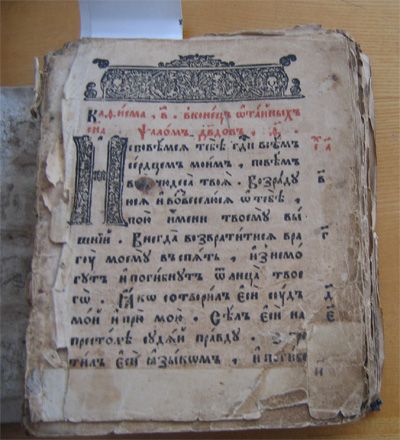 Каѳисма . в҃ . вконецъ ѡтаиныхъ
сна ѱаломъ дв҃довъ . ѳ҃ .
Исповѣмся тебѣ гд҃и всѣм
сердцемъ моимъ , повѣм
чюдеса твоѧ . Возраду
юсѧ и возвеселюсѧ ѡ тебѣ , в҃
пою имени твоему вы
шнїи . Внегда возвратитисѧ вра г҃
гу моему въспѧть , изнемо
гутъ и погибнутъ ѿ лица твое
гѡ . Ꙗко сотворилъ еси судъ д҃
мои и прю мою . Сѣлъ еси на е҃
престолѣ судѧи правду .
тилъ еси ꙗзыкомъ ,